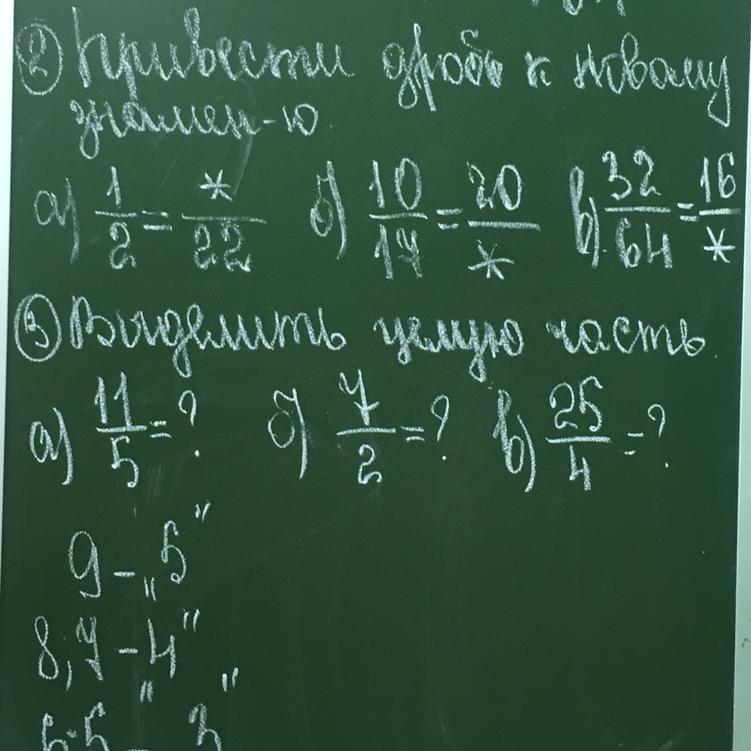 ② Привести дробь к новому
знамен-ю
а) 1/2 = */22 б) 10/17 = 20/* в) 32/64 = 16/*
③ Выделить целую часть
а) 11/5 = ? б) 7/2 = ? в) 25/4 = ?
9 - „5"
8,7 - 4"
6·5" 3"